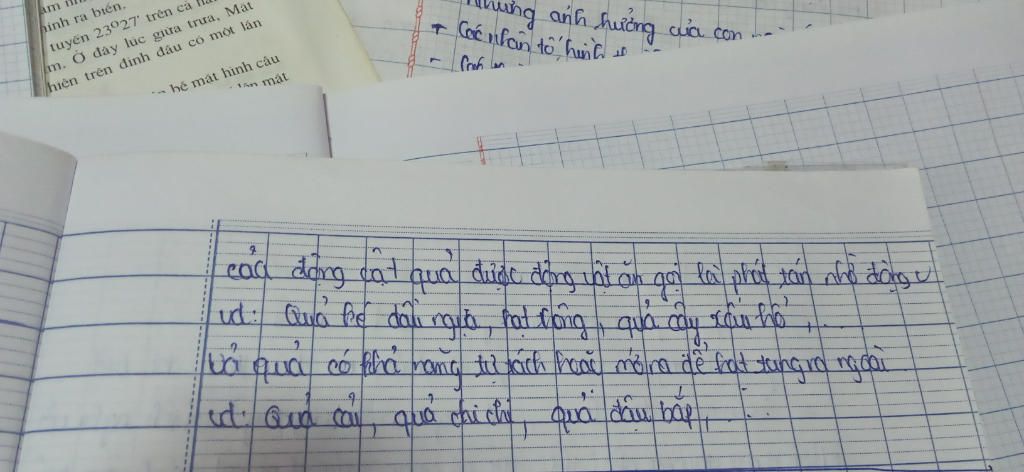 ảnh ra biển.
tuyến 23°27' trên cả
m. Ở đây lúc giữa trưa, Mặt
hiên trên đỉnh đầu có một lần
bề mặt hình cầu
mặt
Những ảnh hưởng của con
+ Các nhân tố hình
động vật quả được động vật ăn gọi là phát tán nhờ động v
vd: Quả ké đầu ngựa, hạt thông, quả cây xấu hổ, ...
vỏ quả có khả năng tự tách hoặc mở ra để hạt tung ra ngoài
vd: Quả cải, quả chi chi, quả đậu bắp, ...